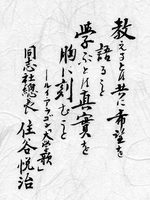 教えるとは共に希望を
語ること
学ぶとは真實を
胸に刻むこと
ールイアラゴン「大学の歌」ー
同志社總長 住谷悦治